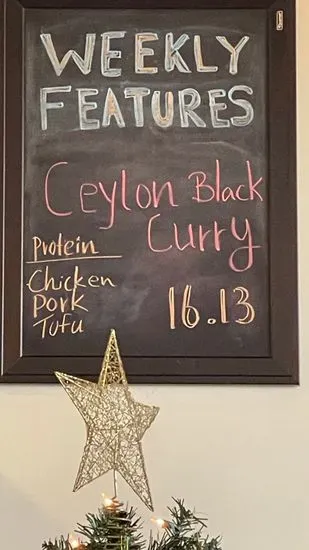 WEEKLY
FEATURES
Ceylon Black
Curry
Protein
Chicken
Pork
Tufu
16.13